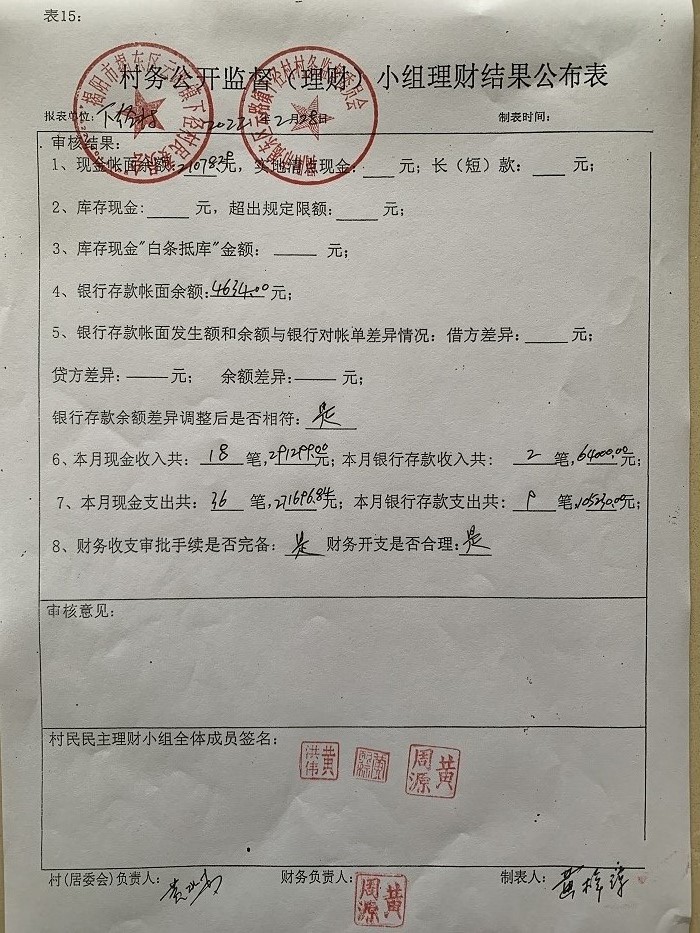 表15：
村务公开监督（理财）小组理财结果公布表
报表单位：下径村 2022年2月28日 制表时间：
审核结果：
1、现金帐面余额： 元，实地清点现金： 元；长（短）款： 元；
2、库存现金： 元，超出规定限额： 元；
3、库存现金"白条抵库"金额： 元；
4、银行存款帐面余额：4634.00元；
5、银行存款帐面发生额和余额与银行对帐单差异情况：借方差异： 元；
贷方差异：——元； 余额差异：——元；
银行存款余额差异调整后是否相符：是
6、本月现金收入共：18笔，291299.00元；本月银行存款收入共：2笔，64000.00元；
7、本月现金支出共：36笔，271696.84元；本月银行存款支出共：9笔，105230.00元；
8、财务收支审批手续是否完备：是 财务开支是否合理：是
审核意见：
村民民主理财小组全体成员签名：
黄洪伟 黄周源
村(居委会)负责人： 财务负责人：黄周源 制表人：黄梓淳